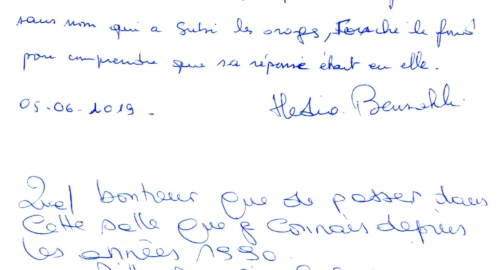 sans nom qui a subi les orages, le
pour comprendre que sa réponse était en elle.
05-06-2019.
Quel bonheur que de passer dans
Cette salle que je connais depuis
les années 1990